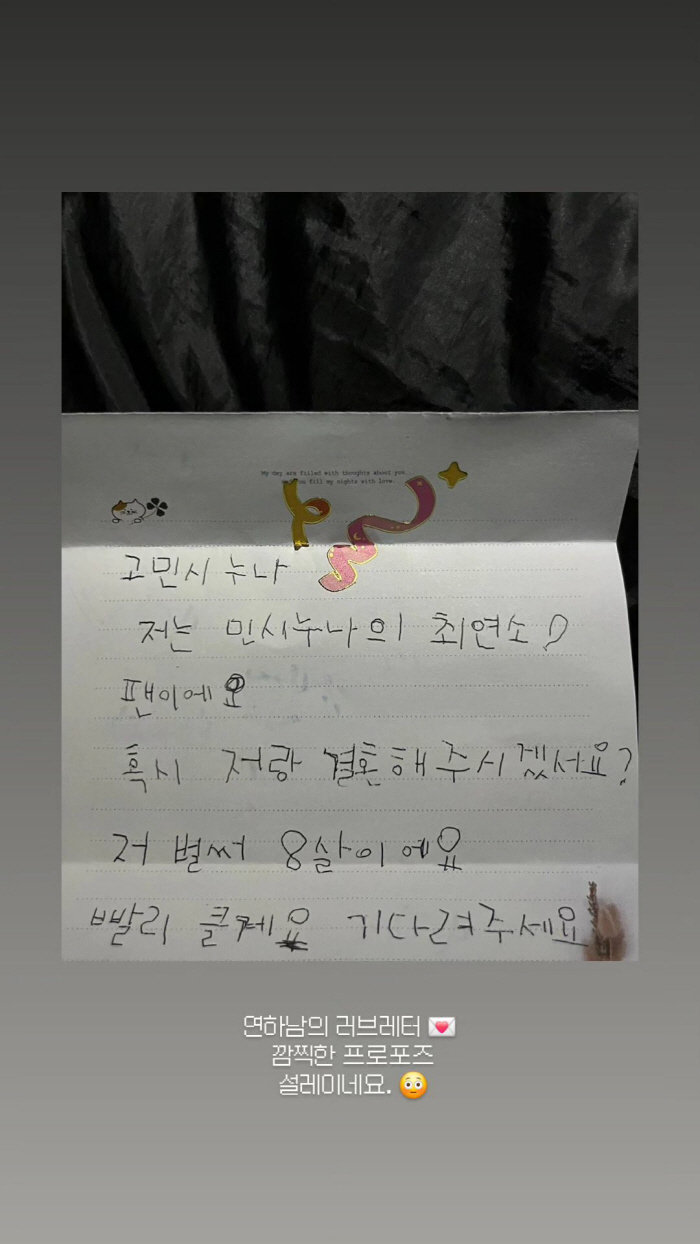 My day are filled with thoughts about you
fill my nights with love.
고민시 누나
저는 민시누나의 최연소
팬이에요
혹시 저랑 결혼해주시겠서요?
저 벌써 8살이에요
빨리 클께요 기다려주세요
연하남의 러브레터 💌
깜찍한 프로포즈
설레이네요. 😳